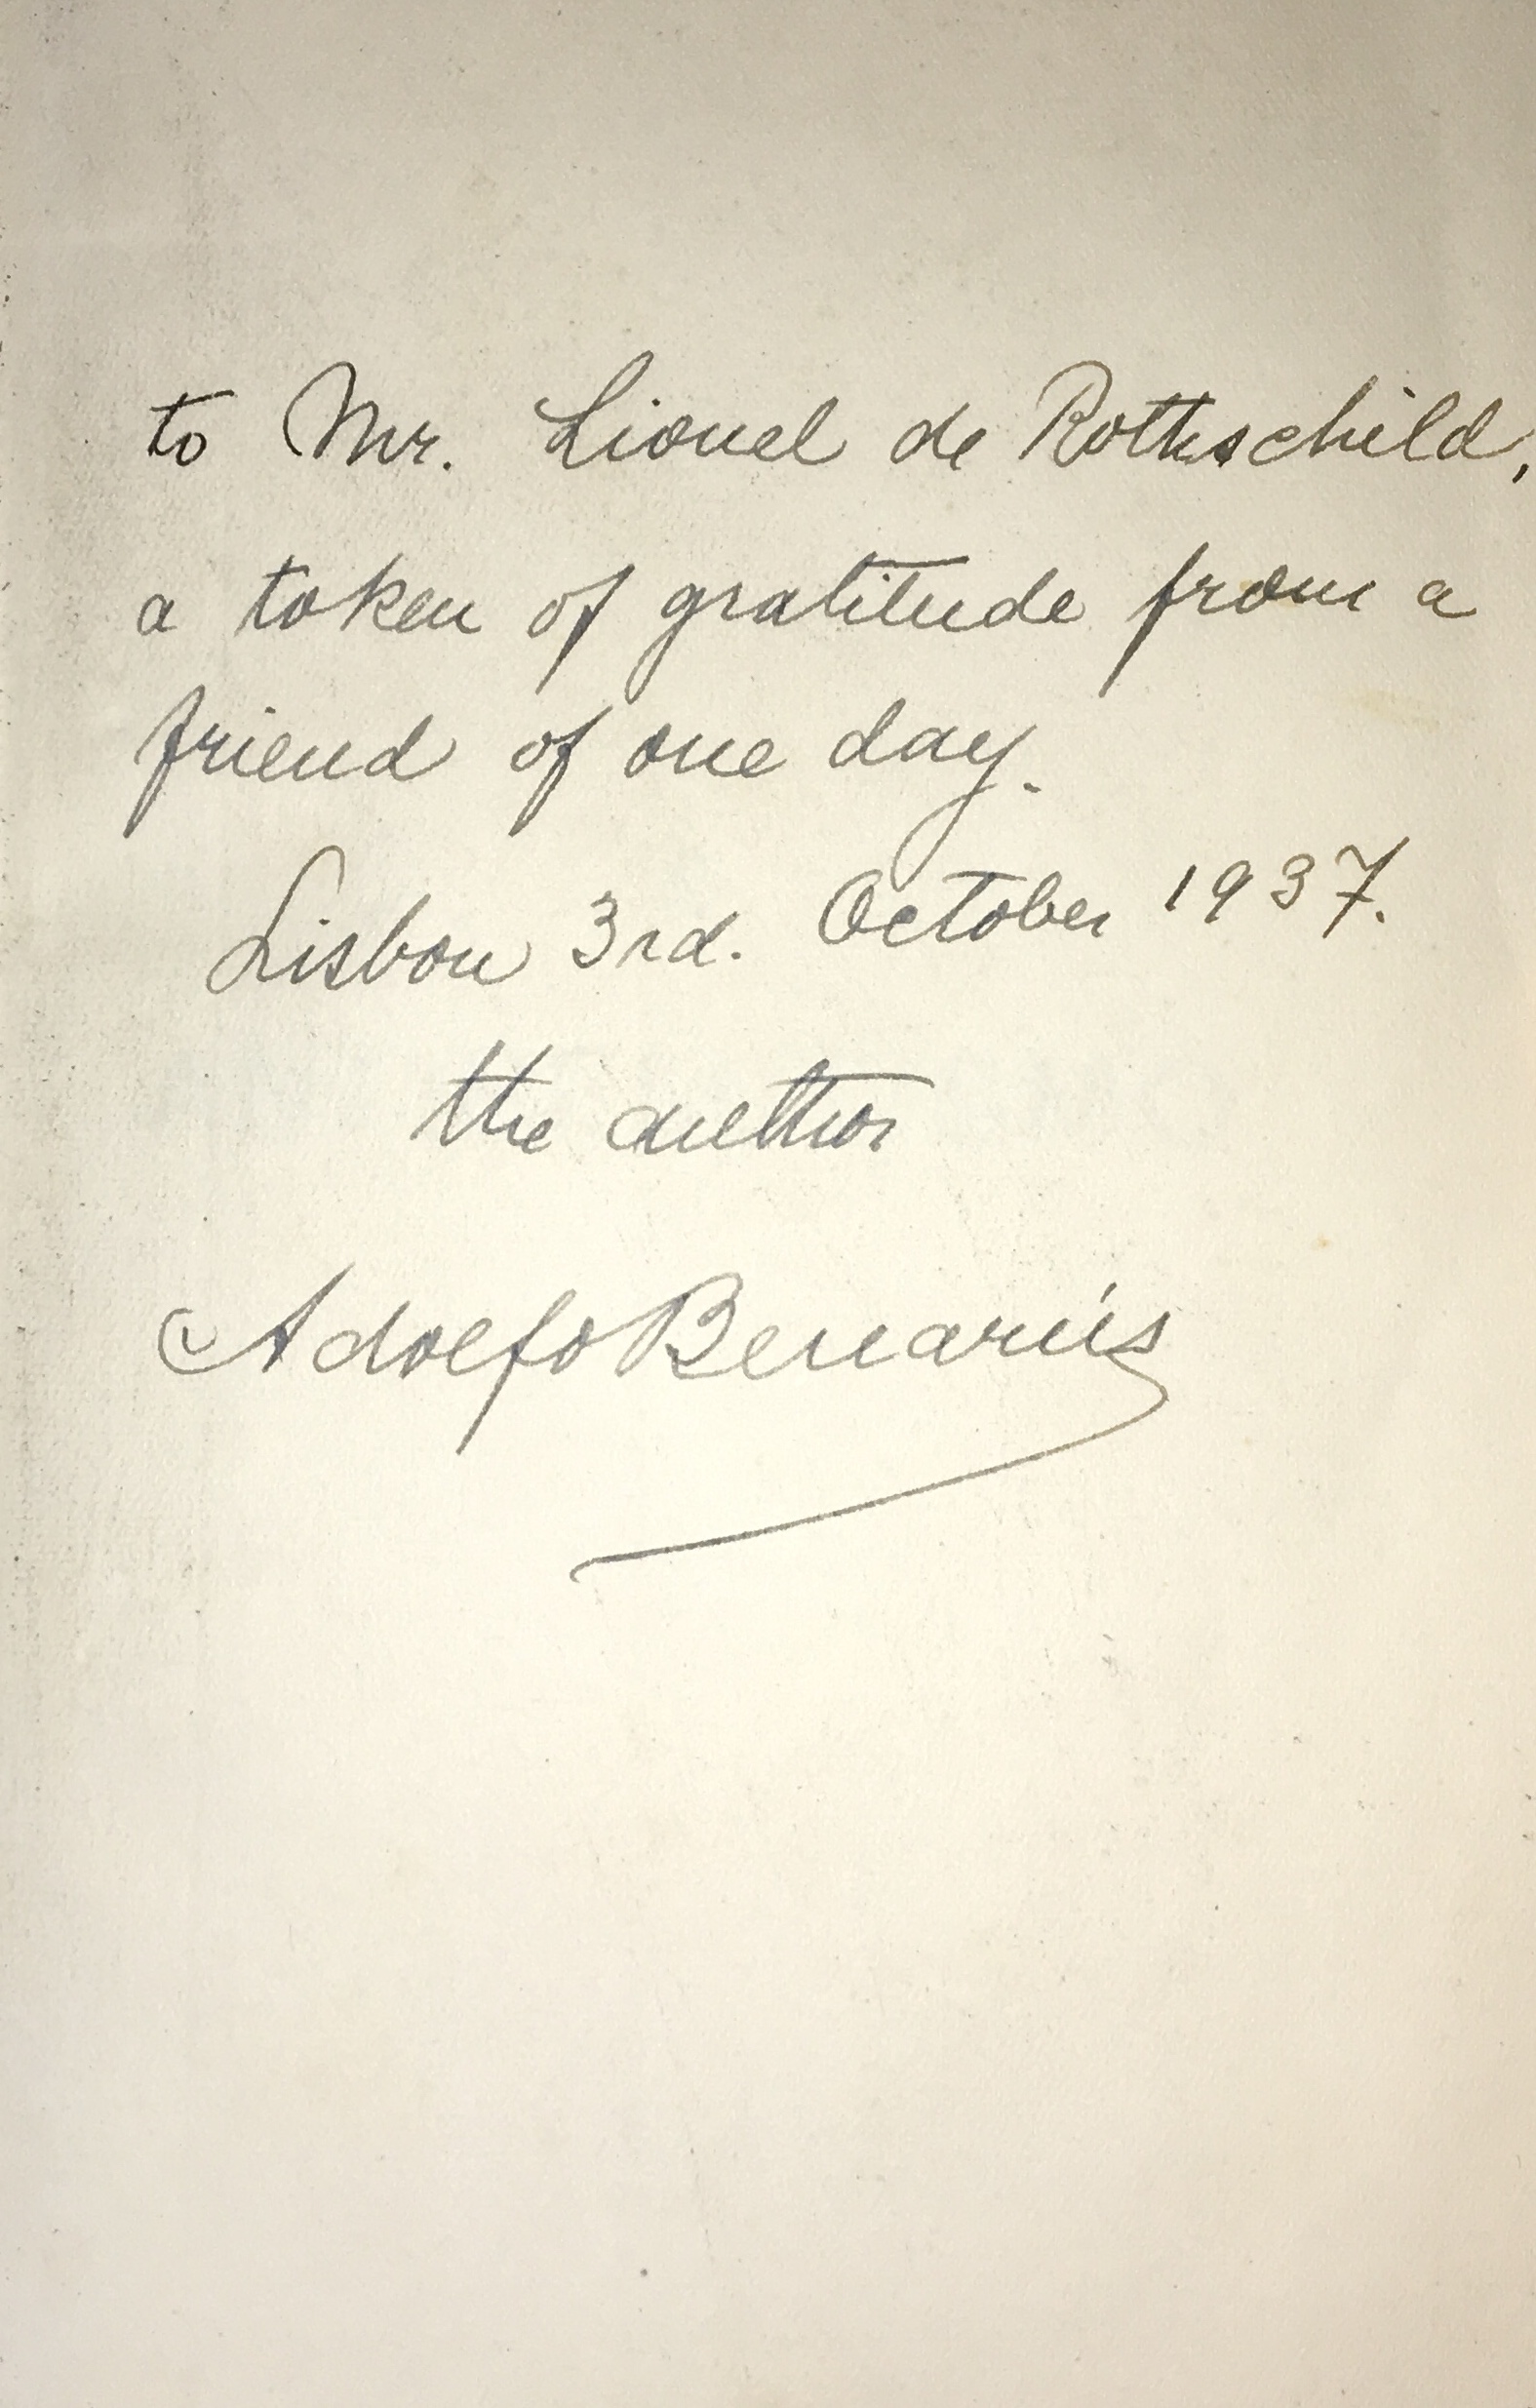 to Mr. Lionel de Rothschild,
a token of gratitude from a
friend of one day.
Lisbon 3rd. October 1937.
the author
Adolfo Benarús